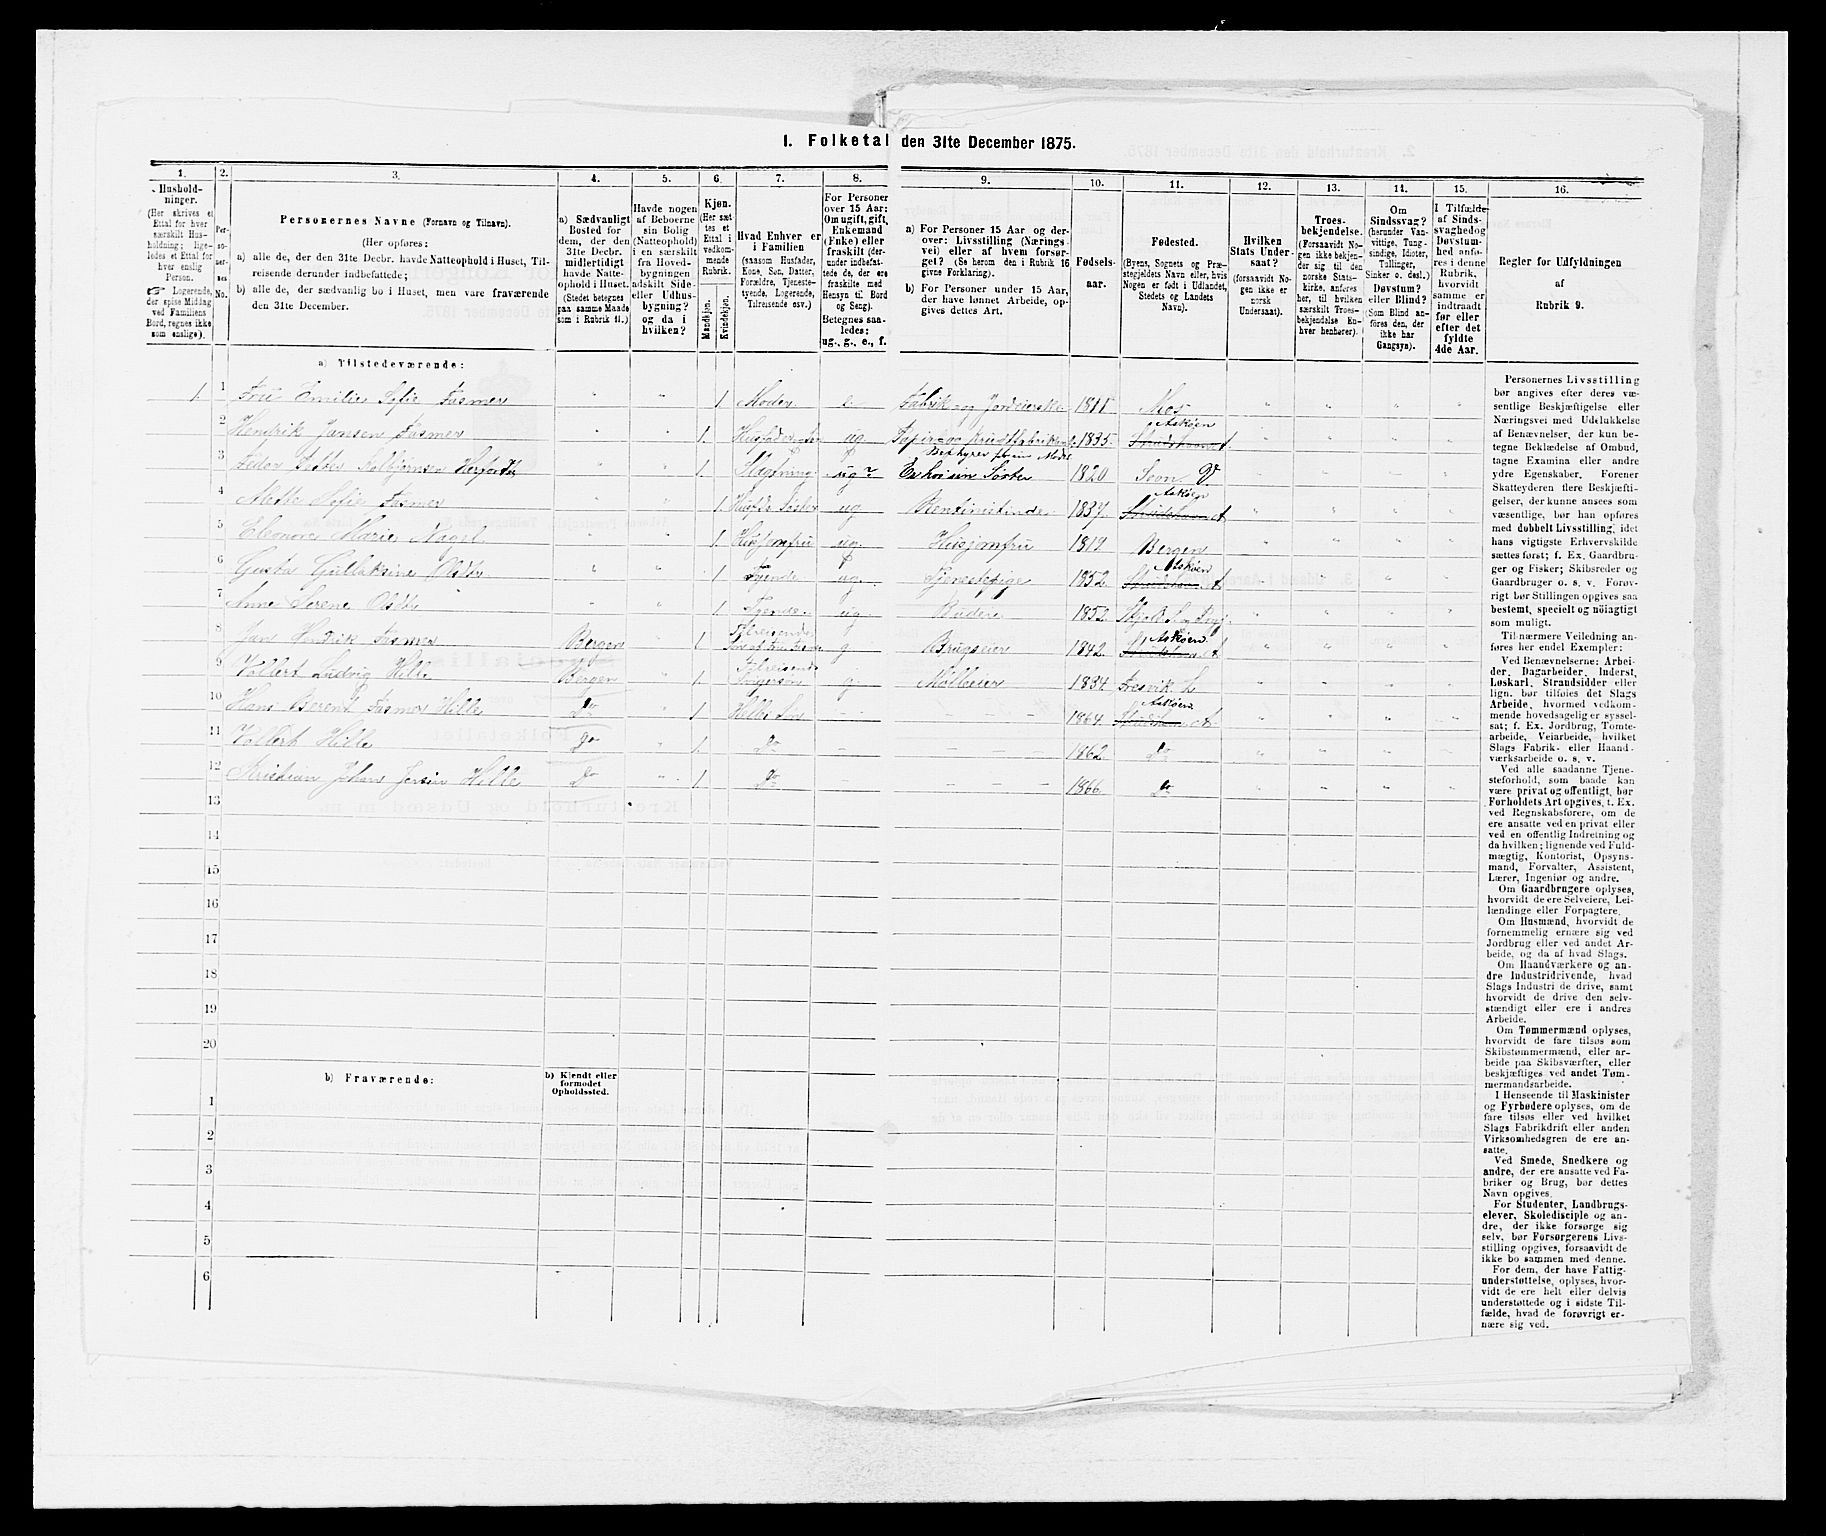 I. Folketal den 31te December 1875.
1.
Hushold-
ninger.
(Her skrives et
Ettal for hver
særskilt Hus-
holdning; lige-
ledes et Ettal for
hver enslig
Person.
☞ Logerende,
der spise Middag
ved Familiens
Bord, regnes ikke
som enslige).
2.
Per-
so-
ner-
nes
No.
3.
Personernes Navne (Fornavn og Tilnavn).
(Her opføres:
a) alle de, der den 31te Decbr. havde Natteophold i Huset, Til-
reisende derunder indbefattede;
b) alle de, der sædvanlig bo i Huset, men vare fraværende
den 31te December.
4.
a) Sædvanligt
Bosted for
dem, der den
31te Decbr.
midlertidigt
havde Natte-
ophold i Huset.
(Stedet betegnes
paa samme Maade
som i Rubrik 11.)
5.
Havde nogen
af Beboerne
sin Bolig
(Natteophold)
i en særskilt
fra Hoved-
bygningen
adskilt Side-
eller Udhus-
bygning?
og da i
hvilken?
6.
Kjøn.
(Her sæt
tes et
Ettal i
vedkom-
mende
Rubrik.
Mandkjøn.
Kvindekjøn.
7.
Hvad Enhver er
i Familien
(saasom Husfader,
Kone, Søn, Datter,
Forældre, Tjeneste-
tyende, Logerende,
Tilreisende osv.)
8.
For Personer
over 15 Aar:
Om ugift, gift,
Enkemand
(Enke) eller
fraskilt (der-
under indbefat-
tede de, der ere
fraskilte med
Hensyn til Bord
og Seng).
Betegnes saa-
ledes;
ug., g., e., f.
9.
a) For Personer 15 Aar og der-
over: Livsstilling (Nærings-
vei) eller af hvem forsør-
get? (Se herom den i Rubrik 16
givne Forklaring).
b) For Personer under 15 Aar,
der have lønnet Arbeide, op-
gives dettes Art.
10.
Fødsels-
aar.
11.
Fødested.
(Byens, Sognets og Præ-
stegjeldets Navn eller, hvis
Nogen er født i Udlandet,
Stedets og Landets
Navn).
12.
Hvilken
Stats Under-
saat?
(forsaavidt No-
gen ikke er
norsk
Undersaat).
13.
Troes-
bekjendelse.
(Forsaavidt No-
gen ikke bekjen-
der sig til den
norske Stats-
kirke, anføres
her, til hvilken
særskilt Troes-
bekjendelse En-
hver henhører).
14.
Om
Sindssvag?
(herunder Van-
vittige, Tung-
sindige, Idioter,
Tullinger,
Sinker o. desl.)
Døvstum?
eller Blind?
(Som Blind an-
føres den, der
ikke har
Gangsyn).
15.
I Tilfælde
af Sinds-
svaghed og
Døvstum-
hed anfø-
res i denne
Rubrik,
hvorvidt
samme er
indtraadt
før eller
efter det
fyldte
4de Aar.
16.
Regler for Udfyldningen
af
Rubrik 9.
a) Tilstedeværende:
1. 1 Fru Emilie Sofie Fasmer " " 1 Moder e Fabrik og Jordeierske 1811 Mos " " " "
2 Hendrik Jansen Fasmer " " 1. ug. Papir og Krudtfabrikant 1835. Askøen
3 Herfordt " " 1. Slægtning ug 1820
4 Mette Sofie Fasmer " " 1 Husfdr Søster ug Rentinistinde 1837. Askøen
5 Eleonore Marie Nagel " " 1 Husjomfru ug. Husjomfru 1819 Bergen
6 Gusta Gullaksine Olsdtr " " 1 Tjende ug Tjenestepige 1852. Askøen
7 Anne Serene Olsdtr " " 1 Tyende ug. Budeie 1852
8 Jan Hendrik Fasmer Bergen " 1 Tilreisende g Brugseier 1842. Askøen
9 Vollert Ludvig Hille Bergen " 1. Tilreisende Svigersøn g. Mølleeier 1834 Fresvik L
10 Hans Berent Fasmer Hille Do " 1 Hilles Søn 1864 Askøen
11 Vollert Hille Do " 1. Do 1862. Do
12 Kristian Johan Jersin Hille Do " 1 Do 1866. Do
13
14
15
16
17
18
19
20
b) Fraværende:
b) Kjendt eller
formodet
Opholdssted.
1
2
3
4
5
6
Personernes Livsstilling
bør angives efter deres væ-
sentlige Beskjæftigelse eller
Næringsvei med Udelukkelse
af Benævnelser, der kun be-
tegne Beklædelse af Ombud,
tagne Examina eller andre
ydre Egenskaber. Forener
Skatteyderen flere Beskjæfti-
gelser, der kunne ansees som
væsentlige, bør han opføres
med dobbelt Livsstilling, idet
hans vigtigste Erhvervskilde
sættes først; f. Ex. Gaardbru-
ger og Fisker; Skibsreder og
Gaardbruger o. s. v. Forøv-
rigt bør Stillingen opgives saa
bestemt, specielt og nöiagtigt
som muligt.
Til nærmere Veiledning an-
føres her endel Exempler:
Ved Benævnelserne: Arbei-
der, Dagarbeider, Inderst,
Løskarl, Strandsidder eller
lign. bør tilføies det Slags
Arbeide, hvormed vedkom-
mende hovedsagelig er syssel-
sat; f. Ex. Jordbrug, Tomte-
arbeide, Veiarbeide, hvilket
Slags Fabrik- eller Haand-
værksarbeide o. s. v.
Ved alle saadanne Tjene-
steforhold, som baade kan
være privat og offentligt, bør
Forholdets Art opgives, t. Ex.
ved Regnskabsførere, om de
ere ansatte ved en privat eller
ved en offentlig Indretning og
da hvilken; lignende ved Fuld-
mægtig, Kontorist, Opsyns-
mand, Forvalter, Assistent,
Lærer, Ingeniør og andre.
Om Gaardbrugere oplyses,
hvorvidt de ere Selveiere, Lei-
lændinge eller Forpagtere.
Om Husmænd, hvorvidt de
fornemmelig ernære sig ved
Jordbrug eller ved andet Ar-
beide, og da af hvad Slags.
Om Haandværkere og an-
dre Industridrivende, hvad
Slags Industri de drive, samt
hvorvidt de drive den selv-
stændigt eller ere i andres
Arbeide.
Om Tømmermænd oplyses,
hvorvidt de fare tilsøs som
Skibstømmermænd, eller ar-
beide paa Skibsværfter, eller
beskjæftiges ved andet Tøm-
mermandsarbeide.
I Henseende til Maskinister
og Fyrbødere oplyses, om de
fare tilsøs eller ved hvilket
Slags Fabrikdrift eller anden
Virksomhedsgren de ere an-
satte.
Ved Smede, Snedkere og
andre, der ere ansatte ved Fa-
briker og Brug, bør dettes
Navn opgives.
For Studenter, Landbrugs-
elever, Skoledisciple og an-
dre, der ikke forsørge sig
selv, bør Forsørgerens Livs-
stilling opgives, forsaavidt de
ikke bo sammen med denne.
For dem, der have Fattig-
understøttelse, oplyses, hvor-
vidt de ere helt eller delvis
understøttede og i sidste Til-
fælde, hvad de forøvrigt er-
nære sig ved.